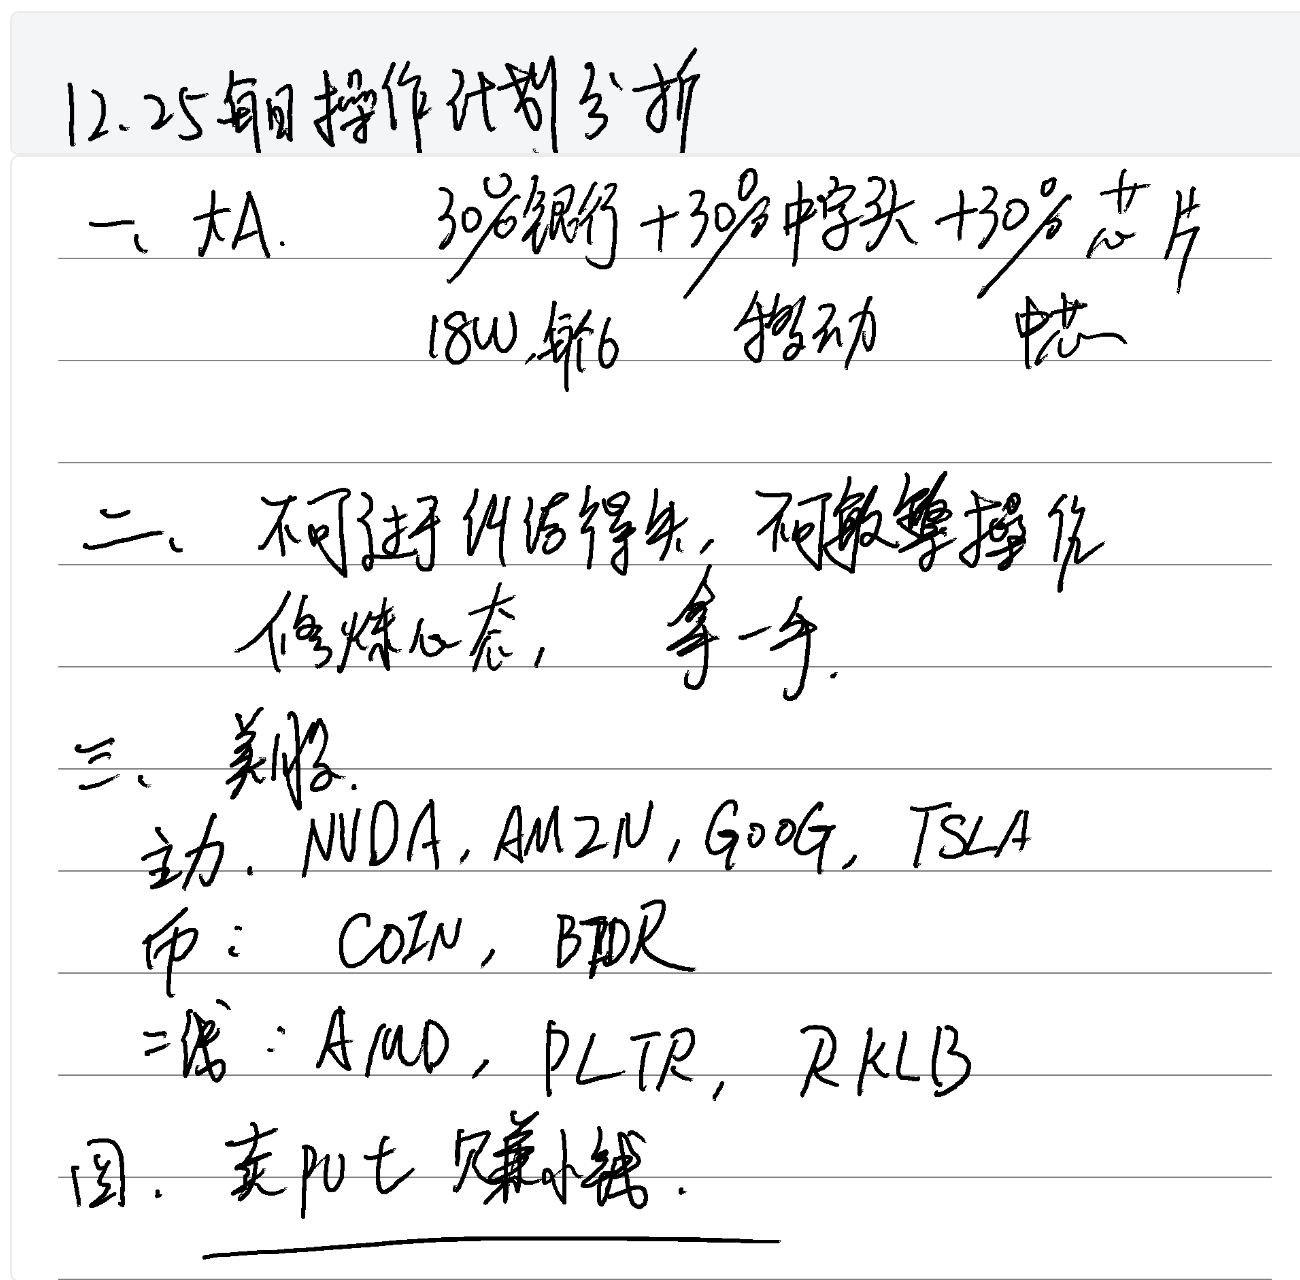 12.25每日操作计划分析
一、大A. 30%银行+30%中字头+30%芯片
18W,每个6 移动 中芯
二、不可过于纠结得失,不可敏感操作
修炼心态, 拿一手.
三、美股.
主力. NVDA, AMZN, GOOG, TSLA
币: COIN, BTDR
二线: AMD, PLTR, RKLB
四. 卖put 只赚小钱.